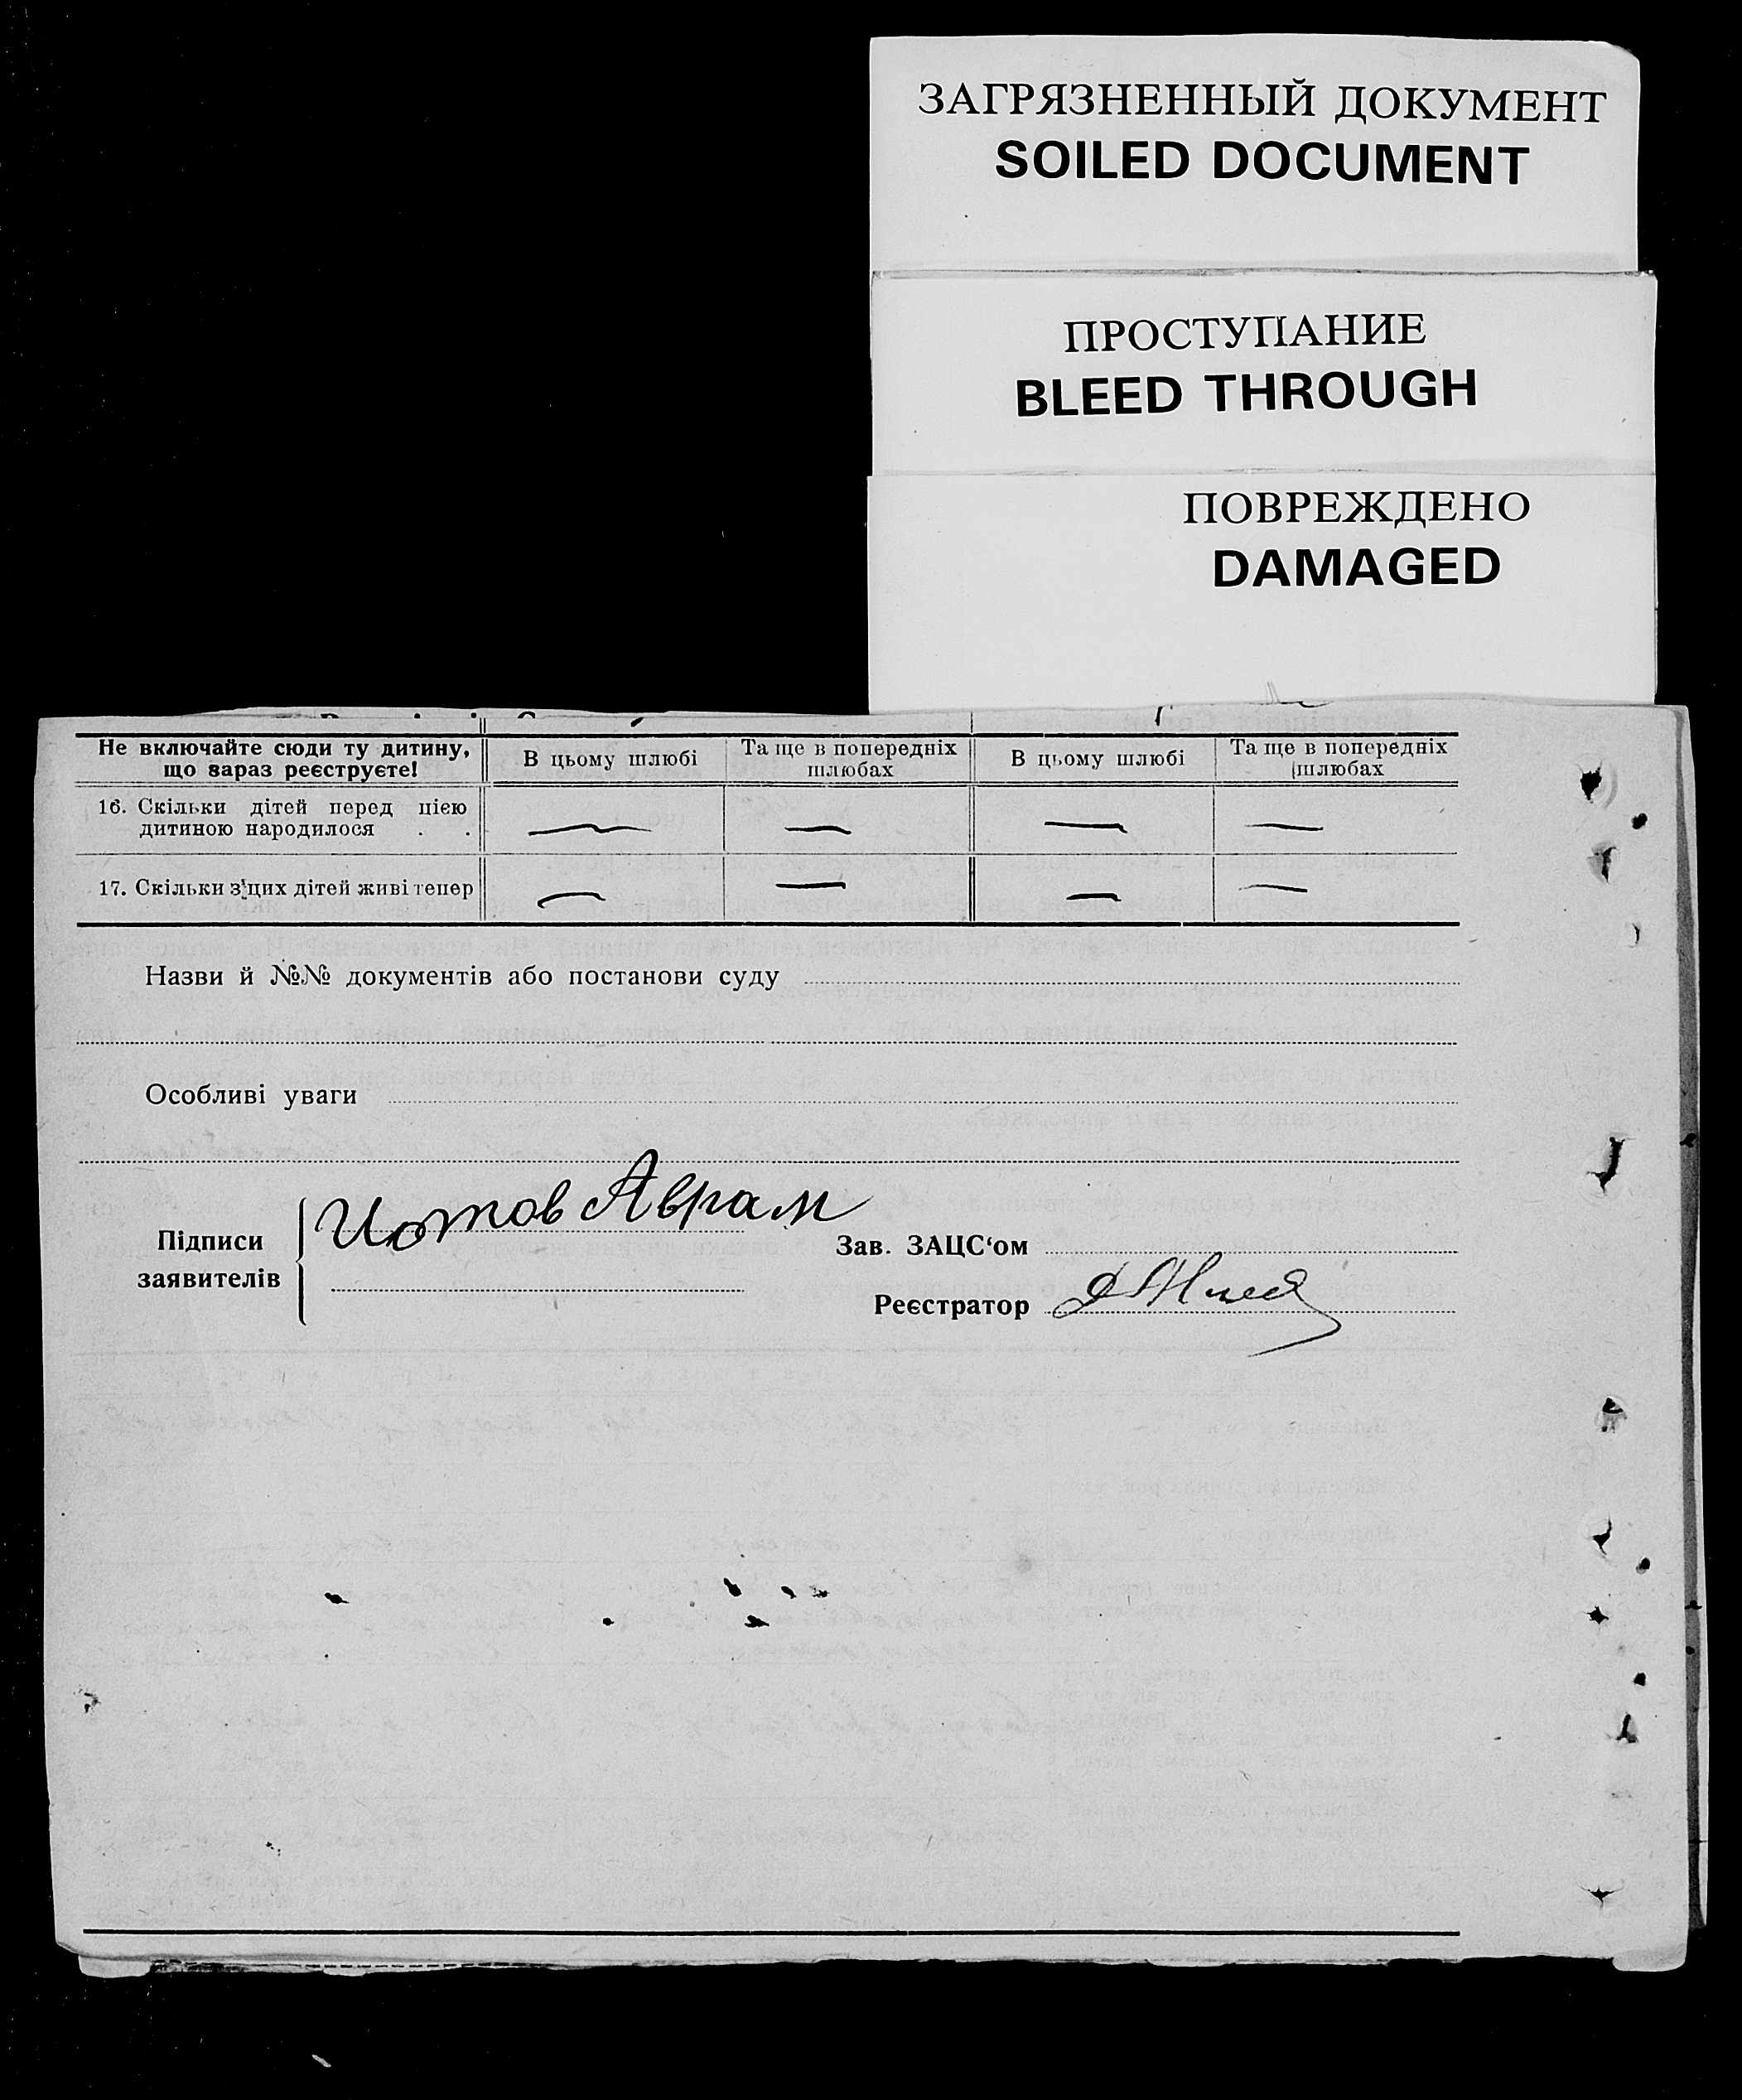 ЗАГРЯЗНЕННЫЙ ДОКУМЕНТ
SOILED DOCUMENT
ПРОСТУПАНИЕ
BLEED THROUGH
ПОВРЕЖДЕНО
DAMAGED
Не включайте сюди ту дитину, що зараз реєструєте!
В цьому шлюбі
Та ще в попередніх шлюбах
В цьому шлюбі
Та ще в попередніх шлюбах
16. Скільки дітей перед цією
дитиною народилося . .
— — — —
17. Скільки з цих дітей живі тепер
— — — —
Назви й №№ документів або постанови суду
Особливі уваги
Підписи
заявителів
Иотов Аврам
Зав. ЗАЦС‘ом
Реєстратор